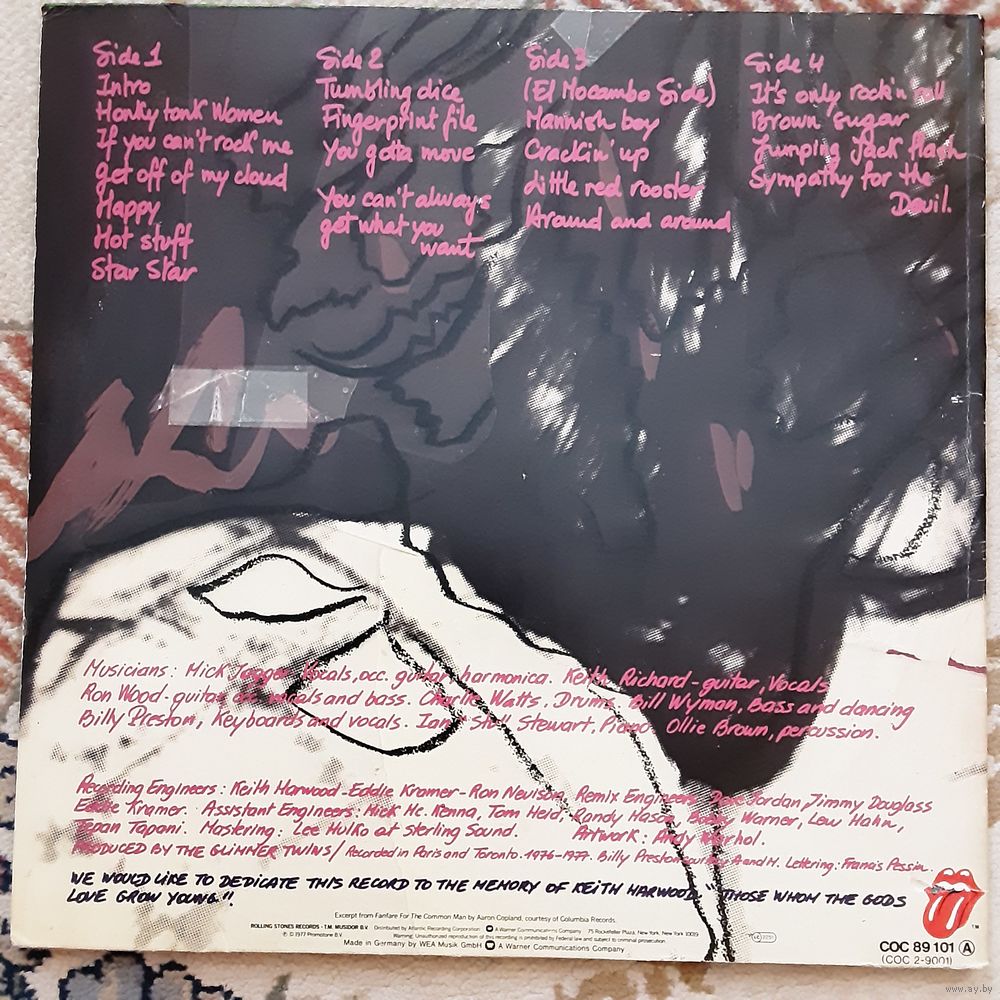 Side 1
Intro
Honky tonk Women
If you can't rock me
get off of my cloud
Happy
Hot stuff
Star Star
Side 2
Tumbling dice
Fingerprint file
You gotta move
You can't always
get what you
want
Side 3
(El Mocambo Side)
Mannish boy
Crackin up
Little red rooster
Around and around
Side 4
It's only rock'n roll
Brown sugar
Jumping Jack flash
Sympathy for the
Devil.
Musicians: Mick Jagger Vocals, occ. guitar, harmonica. Keith Richard - guitar, Vocals
Ron Wood - guitar and vocals and bass. Charlie Watts. Drums. Bill Wyman, Bass and dancing
Billy Preston, Keyboards and vocals. Ian Stu Stewart, Piano. Ollie Brown, percussion.
Recording Engineers: Keith Harwood - Eddie Kramer - Ron Nevison, Remix Engineers Dave Jordan, Jimmy Douglass
Eddie Kramer. Assistant Engineers: Mick Mc. Kenna, Tom Heid, Randy Mason, Bobby Warner, Lew Hahn,
Tapani. Mastering: Lee Hulko at sterling Sound. Artwork: Andy Warhol.
PRODUCED BY THE GLIMMER TWINS / Recorded in Paris and Toronto. 1976-1977. Billy Preston courtesy A and M. Lettering: Pessin.
WE WOULD LIKE TO DEDICATE THIS RECORD TO THE MEMORY OF KEITH HARWOOD. "THOSE WHOM THE GODS
LOVE GROW YOUNG".
Excerpt from Fanfare For The Common Man by Aaron Copland, courtesy of Columbia Records.
ROLLING STONES RECORDS - T.M. MUSIDOR B.V. Distributed by Atlantic Recording Corporation A Warner Communications Company 75 Rockefeller Plaza, New York, New York 10019
℗ © 1977 Promotone B.V. Warning: Unauthorized reproduction of this recording is prohibited by Federal law and subject to criminal prosecution.
Made in Germany by WEA Musik GmbH A Warner Communications Company
TM
COC 89 101 A
(COC 2-9001)
www.ay.by